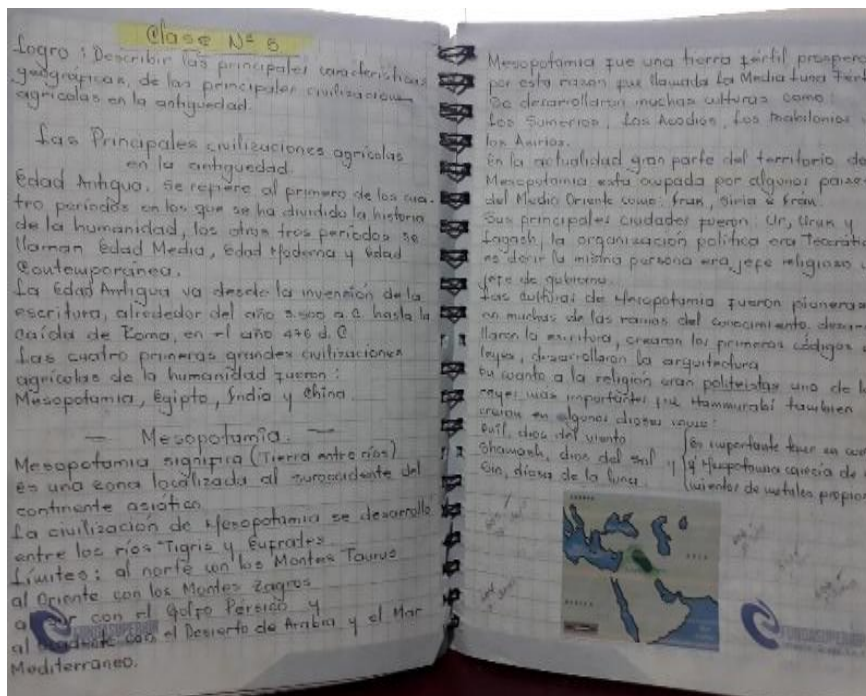 Clase Nº 5
Logro: Describir las principales características
geográficas, de las principales civilizaciones
agrícolas en la antiguedad.
Las Principales civilizaciones agrícolas
en la antiguedad
Edad Antigua. Se refiere al primero de los cua-
tro periodos en los que se ha dividido la historia
de la humanidad, los otros tres periodos se
llaman Edad Media, Edad Moderna y Edad
Contemporánea.
La Edad Antigua va desde la invención de la
escritura, alrededor del año 3.500 a.C. hasta la
caída de Roma, en el año 476 d.C
Las cuatro primeras grandes civilizaciones
agrícolas de la humanidad fueron:
Mesopotamia, Egipto, India y China
— Mesopotamia. —
Mesopotamia significa (Tierra entre ríos)
es una zona localizada al suroccidente del
continente asiático
La civilización de Mesopotamia se desarrolló
entre los ríos Tigris y Eufrates
Límites: al norte con los Montes Taurus
al Oriente con los Montes Zagros
con el Golfo Pérsico y
al occidente con el Desierto de Arabia y el Mar
Mediterraneo.
Mesopotamia fue una tierra fértil
por esta razon fue llamada la Media Luna
Se desarrollaron muchas culturas como:
Los Sumerios, Los Acadios, Los Babilonios
los Asirios.
En la actualidad gran parte del territorio de
Mesopotamia esta ocupada por algunos
del Medio Oriente como: Irak, Siria e Irán.
Sus principales ciudades fueron: Ur, Uruk y
Lagash, la organización política era
es decir la misma persona era jefe religioso
jefe de gobierno.
Las culturas de Mesopotamia fueron
en muchas de las ramas del conocimiento,
llaron la escritura, crearon los primeros códigos
leyes, desarrollaron la arquitectura
En cuanto a la religión eran politeistas uno de
reyes mas importantes fue Hammurabi tambien
creian en algunos dioses como:
Enlil, dios del viento
Shamash, dios del sol y
Sin, diosa de la luna.
es importante tener en
Mesopotamia carecia de
de metales
FUNDASUPERIOR